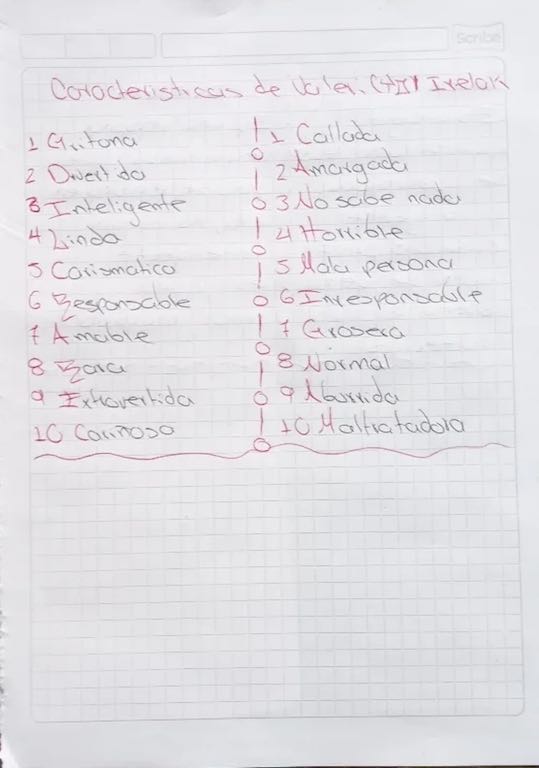 Scribe
Caracteristicas de Valeri
1 Gritona
2 Divertida
3 Inteligente
4 Linda
5 Carismatica
6 Responsable
7 Amable
8 Rara
9 Extrovertida
10 Cariñosa
1 Callada
2 Amargada
3 No sabe nada
4 Horrible
5 Mala persona
6 Irresponsable
7 Grosera
8 Normal
9 Aburrida
10 Maltratadora